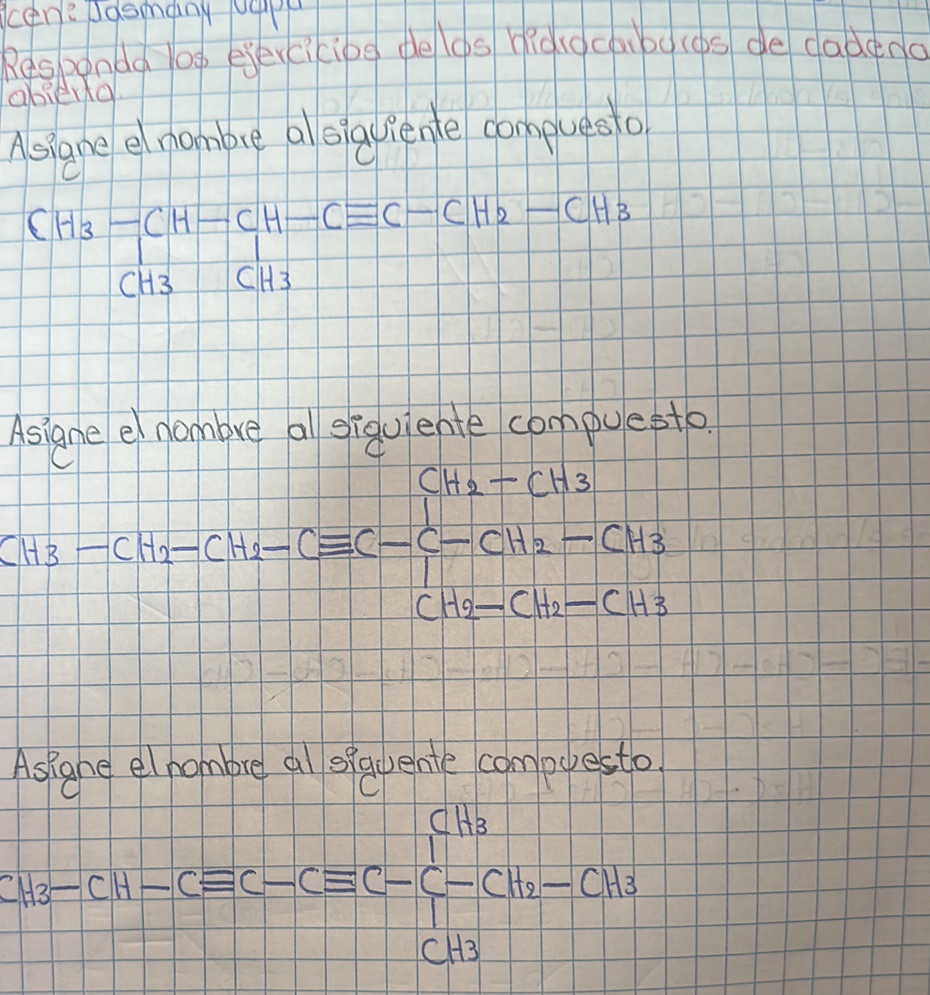 icen: Jasmany
Responda los ejercicios de los hidrocarburos de cadena
abierta.
Asigne el nombre al siguiente compuesto.
CH3 — CH — CH — C≡C — CH2 — CH3
CH3 CH3
Asigne el nombre al siguiente compuesto.
CH2 — CH3
CH3 — CH2 — CH2 — C≡C — C — CH2 — CH3
CH2 — CH2 — CH3
Asigne el nombre al siguente compuesto.
CH3
CH3 — CH — C≡C — C≡C — C — CH2 — CH3
CH3